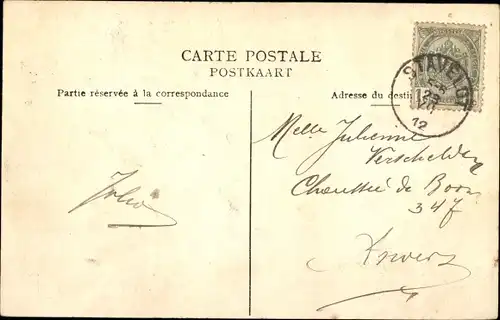 CARTE POSTALE
POSTKAART
Partie réservée à la correspondance
Adresse du desti
STAVELOT
12
Melle Julienne
Verschelden
Chaussée de Boom
347
Anvers